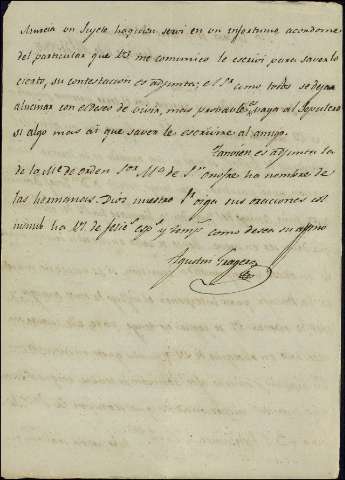 Murcia un Sujeto haquien servi en un infortunio acordeme
del particular que Vd me comunico le escrivi para saver lo
cierto, su contestacion es adjunta; el Sr como todos se dejan
alucinar con el deseo de vivir, mas provable vaya al Sepulcro
si algo mas ai que saver le escrivire al amigo.
Tanvien es adjunta la
de la Me de orden Sor Ma de Sn Onofre ha nombre de
las hermanas. Dios nuestro Sr oiga sus oraciones
ha Vd de felicd espl y templ como desea su affmo
Agustin